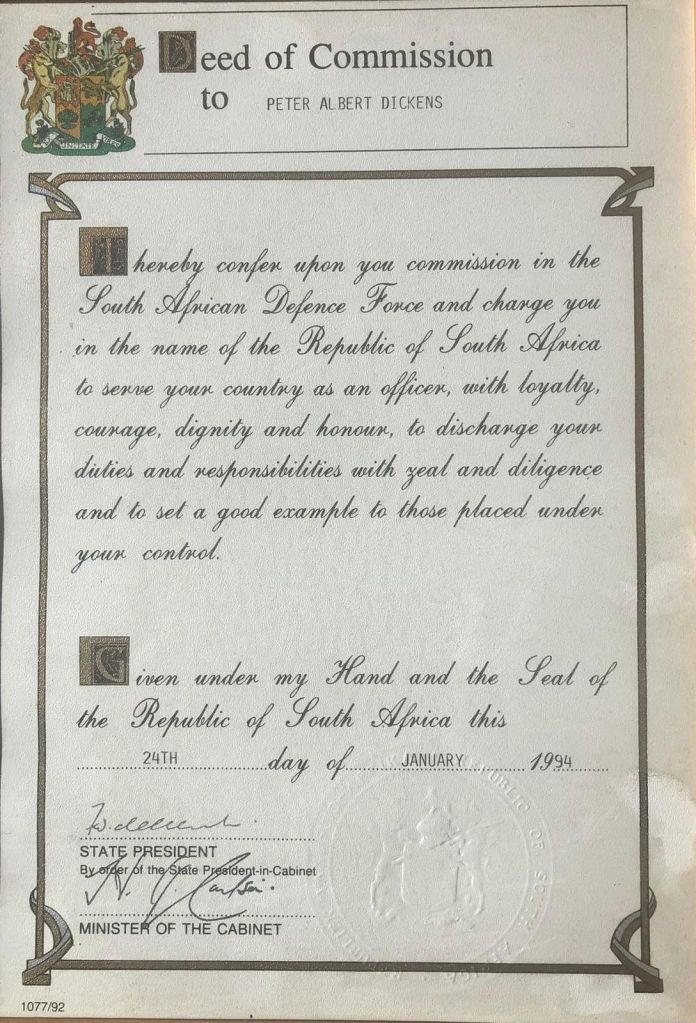 Deed of Commission
to PETER ALBERT DICKENS
UNITATE
I hereby confer upon you commission in the
South African Defence Force and charge you
in the name of the Republic of South Africa
to serve your country as an officer, with loyalty,
courage, dignity and honour, to discharge your
duties and responsibilities with zeal and diligence
and to set a good example to those placed under
your control.
Given under my Hand and the Seal of
the Republic of South Africa this
24TH day of JANUARY 1994
STATE PRESIDENT
By order of the State President-in-Cabinet
MINISTER OF THE CABINET
REPUBLIC OF SOUTH AFRICA
1077/92